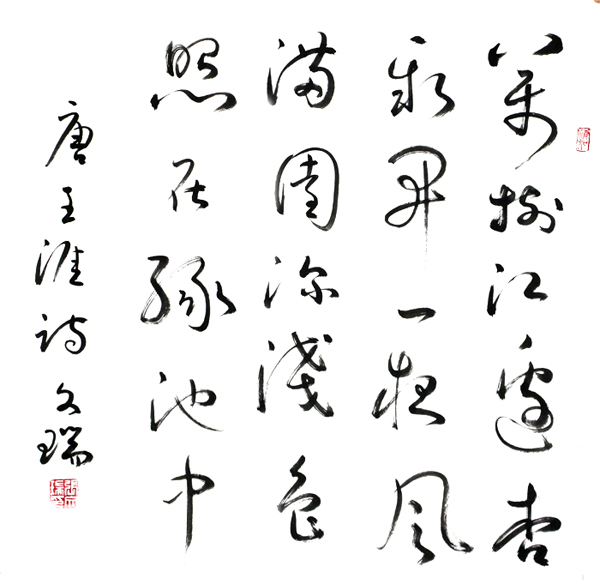 萬樹江邊杏
新開一夜風
滿園深淺色
照在綠池中
唐王涯詩 文瑞